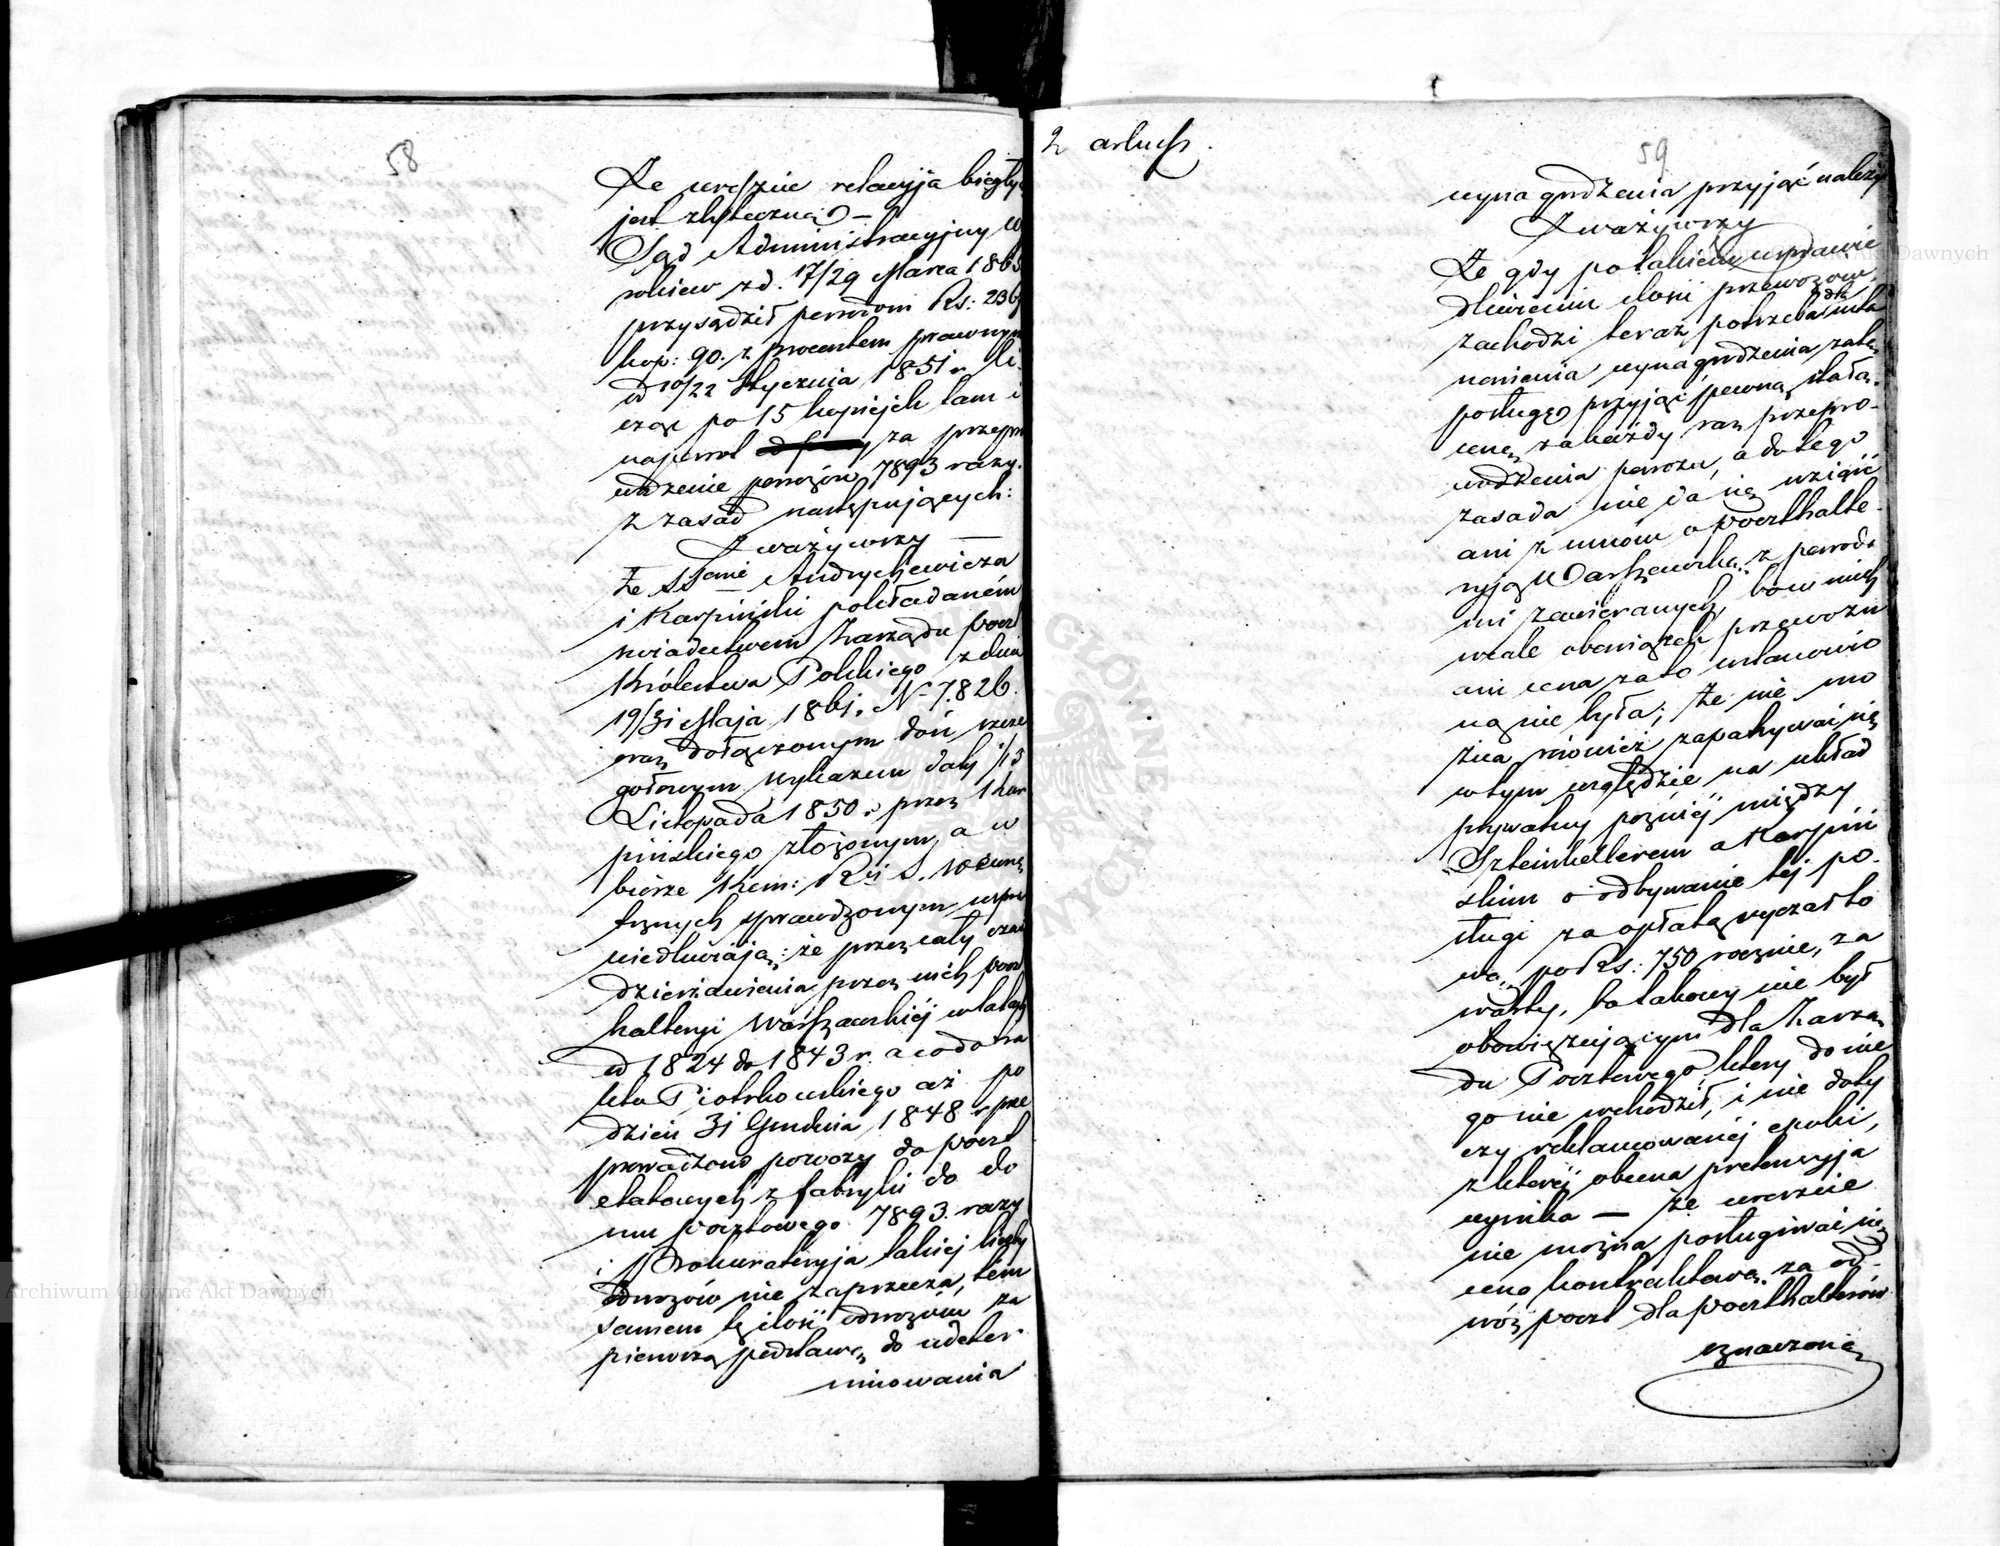 58
Że wreszcie relacyja biegłych
jest zbyteczną —
Sąd Administracyjny w
rokiem z d. 17/29 Marca 1865
przysądził powodom Rs: 236
kop: 90. z procentem prawnym
od 10/22 Stycznia 1851 r. li
cząc po 15 kopiejek tam i
napowrót za przepro
wadzenie powozów 7893 razy.
z zasad następujących:
Zważywszy —
Że SSorowie Andrychiewicza
i Karpiński pokładaném
świadectwem Zarządu poczt
Królestwa Polskiego z dnia
19/31 Maja 1861. No 7826.
oraz dołączonym doń szcze
gółowym wykazem daty 1/13
Listopada 1850 r. przez Kar
pińskiego złożonym, a w
biórze Kom: Rzą S. Wewnę
trznych sprawdzonym, uspra
wiedliwiają: że przez cały czas
dzierżawienia przez nich poczt
halteryi Warszawskiéj w latach
od 1824 do 1843 r. a co do tra
ktu Piotrkowskiego aż po
dzień 31 Grudnia 1848 r. prze
prowadzono powozy do poczt
etatowych z fabryki do do
mu pocztowego 7893. razy
i Prokuratoryja takiej liczby
odwozów nie zaprzecza, tém
samem tę ilość odwozów za
pierwszą podstawę do udeter
minowania
2 arkusz.
59
wynagrodzenia przyjąć należy
Zważywszy
Że gdy po takiém usprawie
dliwieniu ilości przewozów,
zachodzi teraz potrzeba usta
nowienia wynagrodzenia za tę
posługę, przyjąć pewną stałą
cenę za każdy raz przepro-
wadzenia powozu, a do tego
zasada nie da się wziąść
ani z umów o poczthalte-
ryją Warszawską z powoda
mi zawieranych, bo w nich
wcale obowiązek przewozu
ani cena za to ustanowio
ną nie była; że nie mo
żna również zapatrywać się
w tym względzie na układ
prywatny późniéj między
Szteinkellerem a Karpiń
skim o odbywanie téj po-
sługi za opłatą ryczałto
wą po Rs: 750 rocznie, za
warty, bo takowy nie był
obowiązującym dla Zarzą
du Pocztowego, który do nie
go nie wchodził, i nie doty
czy reklamowanéj epoki,
z któréj obecna pretensyja
wynika — że wreszcie
nie można posługiwać się
ceną kontraktową za od-
wóz poczt dla poczthalterów
oznaczoną
Archiwum Główne Akt Dawnych